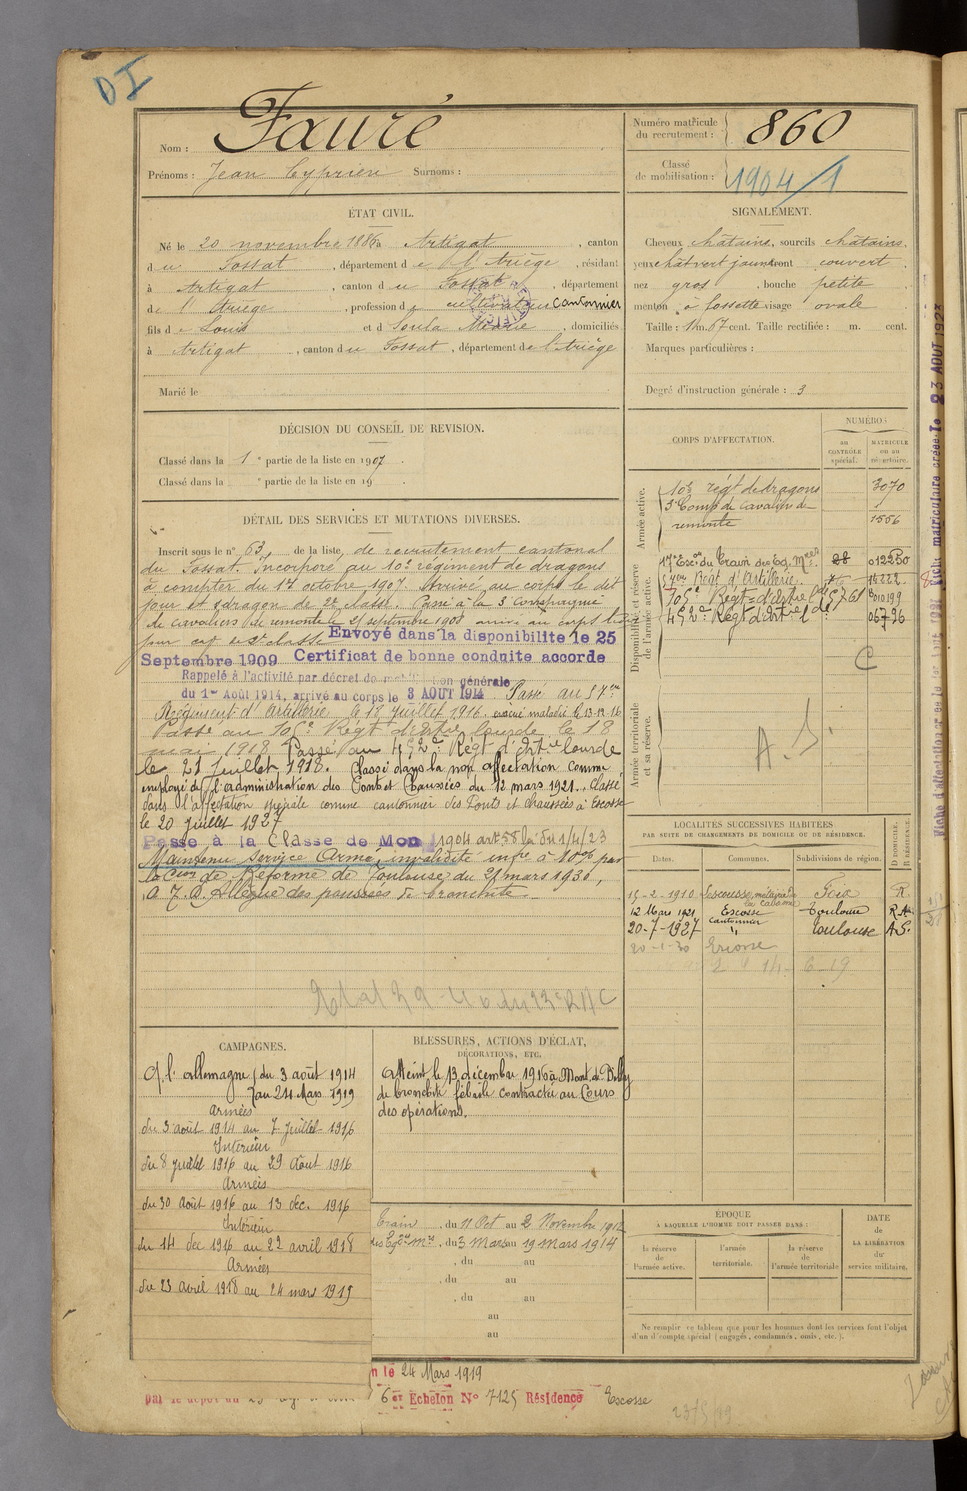 DI
Nom : Fauré
Prénoms : Jean Cyprien Surnoms :
Numéro matricule du recrutement : 860
Classe de mobilisation : 1904/1
ÉTAT CIVIL.
Né le 20 novembre 1886 à Artigat , canton
du Fossat , département de l'Ariège , résidant
à Artigat , canton du Fossat , département
de l'Ariège , profession de cultivateur cantonnier
fils de Louis et de Soula Marie , domiciliés
à Artigat , canton du Fossat , département de l'Ariège
Marié le
SIGNALEMENT.
Cheveux châtains, sourcils châtains,
yeux chât vert jaun front couvert
nez gros , bouche petite
menton à fossette visage ovale
Taille : 1 m. 67 cent. Taille rectifiée : m. cent.
Marques particulières :
Degré d'instruction générale : 3
DÉCISION DU CONSEIL DE REVISION.
Classé dans la 1e partie de la liste en 1907 .
Classé dans la e partie de la liste en 19 .
DÉTAIL DES SERVICES ET MUTATIONS DIVERSES.
Inscrit sous le n° 63 de la liste de recrutement cantonal
du Fossat. Incorporé au 10e régiment de dragons
à compter du 1er octobre 1907. Arrivé au corps le dit
jour et dragon de 2e classe. Passé à la 3e Compagnie
de cavaliers de remonte le 21 septembre 1908 arrivé au corps le dit
jour cav de 2e classe Envoyé dans la disponibilite le 25
Septembre 1909 Certificat de bonne conduite accorde
Rappelé à l'activité par décret de mobilisation générale
du 1er Août 1914, arrivé au corps le 3 AOUT 1914 Passé au 57me
Régiment d'Artillerie le 18 Juillet 1916. évacué malade le 13-12-16
Passé au 105e Régt d'Artie lourde le 18
mai 1918 Passé au 452e Régt d'Artie lourde
le 21 Juillet 1918. Classé dans la non affectation comme
employé de l'administration des Ponts et Chaussées du 12 mars 1921. Classé
dans l'affectation spéciale comme cantonnier des Ponts et Chaussées à Escosse
le 20 juillet 1927
Passé à la Classe de Mob 1904 art 58 loi du 1/4/23
Maintenu Service Armé, invalidité infre à 10% par
la Cion de Réforme de Toulouse du 21 mars 1930,
CORPS D'AFFECTATION.
NUMÉROS
AU CONTRÔLE spécial.
MATRICULE ou au répertoire.
Armée active.
10e régt de dragons 3070
3e Comp de cavaliers de
remonte 1556
Disponibilité et réserve de l'armée active.
17e Escon du Train des Eq. Mres 28 012250
57me Régt d'Artillerie.
105e Régt d'Artie Lde
452e Régt d'Artie Lde 06726
Armée territoriale et sa réserve.
A. S.
LOCALITÉS SUCCESSIVES HABITÉES
PAR SUITE DE CHANGEMENTS DE DOMICILE OU DE RÉSIDENCE.
Dates. Communes. Subdivisions de région. D DOMICILE. R RÉSIDENCE.
15-2-1910 Lescousse, métairie de la Cabanne Foix R
12 Mars 1921 Escosse Toulouse R
20-7-1927 cantonnier " Toulouse A.S.
CAMPAGNES.
C. l'allemagne du 3 août 1914
au 24 Mars 1919
Armées
du 3 août 1914 au 7 Juillet 1916
Intérieur
du 8 juillet 1916 au 29 Août 1916
Armées
du 30 août 1916 au 13 dec. 1916
Intérieur
du 14 dec 1916 au 22 avril 1918
Armées
du 23 avril 1918 au 24 mars 1919
BLESSURES, ACTIONS D'ÉCLAT,
DÉCORATIONS, ETC.
Atteint le 13 décembre 1916 à Mont de Billy
de bronchite fébrile contractée au Cours
des opérations.
Train , du 11 Oct au 2 Novembre 1912
des Eqges Mres , du 3 Mars au 19 Mars 1914
, du au
, du au
, du au
au
au
ÉPOQUE
À LAQUELLE L'HOMME DOIT PASSER DANS :
la réserve de l'armée active.
l'armée territoriale.
la réserve de l'armée territoriale
DATE de LA LIBÉRATION du service militaire.
Ne remplir ce tableau que pour les hommes dont les services font l'objet
d'un d'compte spécial (engagés, condamnés, omis, etc.).
n le 24 Mars 1919
6e Echelon No 7125 Résidence Escosse